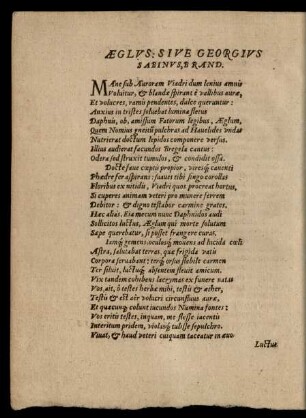 ÆGLVS: SIVE GEORGIVS
SABINVS, BRAND.
MAne sub Auroram Viadri dum lenius amnis
Voluitur, & blandæ spirant è vallibus auræ,
Et volucres, ramis pendentes, dulce queruntur:
Anxius in tristes soluebat lumina fletus
Daphnis, ob, amissum Fatorum legibus, Æglum,
Quem Nomius gnatis pulchras ad Hauelides vndas
Nutrierat doctum lepidos componere versus.
Illius audierat facundus Bregela cantus:
Odera sed struxit tumulos, & condidit ossa.
Docte faue cœptis propior, viresq́; canenti
Phædre fer aspirans: suauet tibi singo corollas
Floribus ex nitidis, Viadri quos procreat hortus,
Si cuperes animam veteri pro munere ferrem
Debitor: & digno testabor carmine grates.
Hac alias. Eia mecum nunc Daphnidos audi
Sollicitos luctus, Æglum qui morte solutam
Sæpe querebatur, si posset frangere curas.
Iamq́; gemens: oculosq́; mouens ad lucida cœli
Astra, salutabat terras, quæ frigida vatis
Corpora seruabant: terq́; orsus flebile carmen
Ter siluit, luctuq́; absentem fleuit amicum.
Vix tandem cohibens lacrymas ex funere natas
Vos, ait, ô testes herbæ mihi, testis & æther,
Testis & est aër volucri circunfluus aura,
Et quæcunq́; colunt iucundos Numina fontes:
Vos eritis testes, inquam, me flesse iacentis
Interitum pridem, violasq́; tulisse sepulchro.
Viuat, & haud veteri cuiquam taceatur in æuo
Luctus